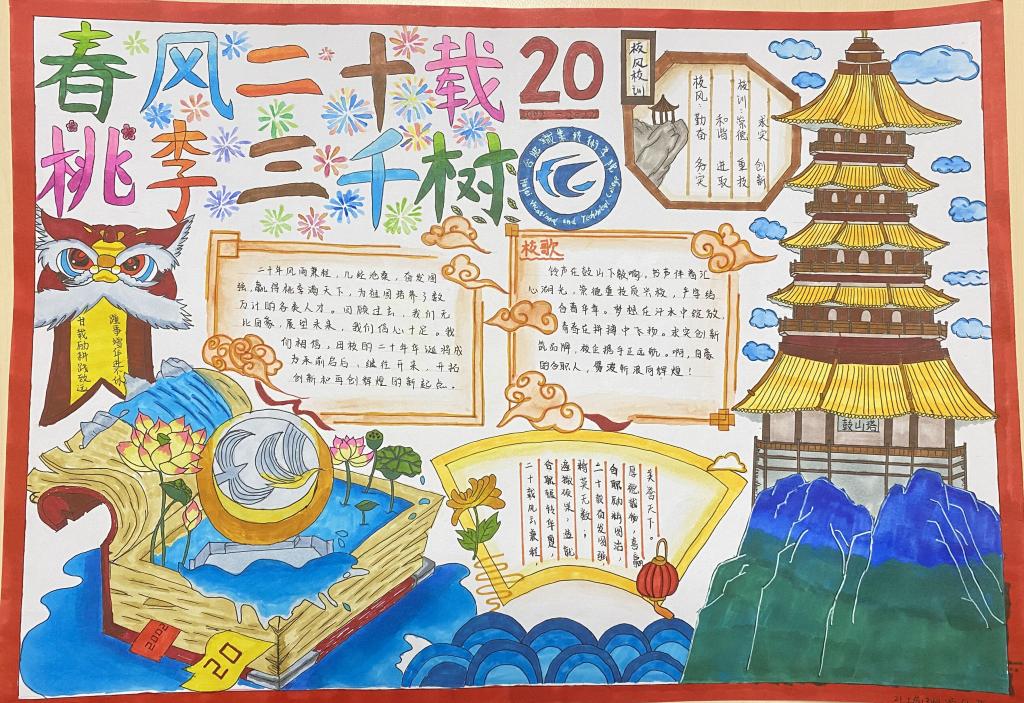 春风二十载
桃李三千树
20
2002-2022
合肥职业技术学院
Hefei Vocational and Technology College
校风校训
校训：崇德 重技
求实 创新
校风：勤奋 务实
和谐 进取
二十年风雨兼程，几经沧桑，奋发图
强，赢得桃李满天下，为祖国培养了数
万计的各类人才。回顾过去，我们无
比自豪，展望未来，我们信心十足。我
们相信，母校的二十年华诞将成
为承前启后、继往开来、开拓
创新和再创辉煌的新起点。
校歌
铃声在鼓山下敲响，书声伴着汇
心湖光，崇德重技质兴校，严学结
合育年华。梦想在汗水中绽放，
青春在拼搏中飞扬。求实创新
筑品牌，校企携手正远航。啊，自豪
的合职人，劈波斩浪向辉煌！
廿载励耕践致远
鼓山塔
芙蓉天下。
厚德载物，喜赢
合职励精图治，
二十载奋发图强
精英无数；
遍撒硕果，造就
合职破转华夏，
二十载风云兼程，
2002
20